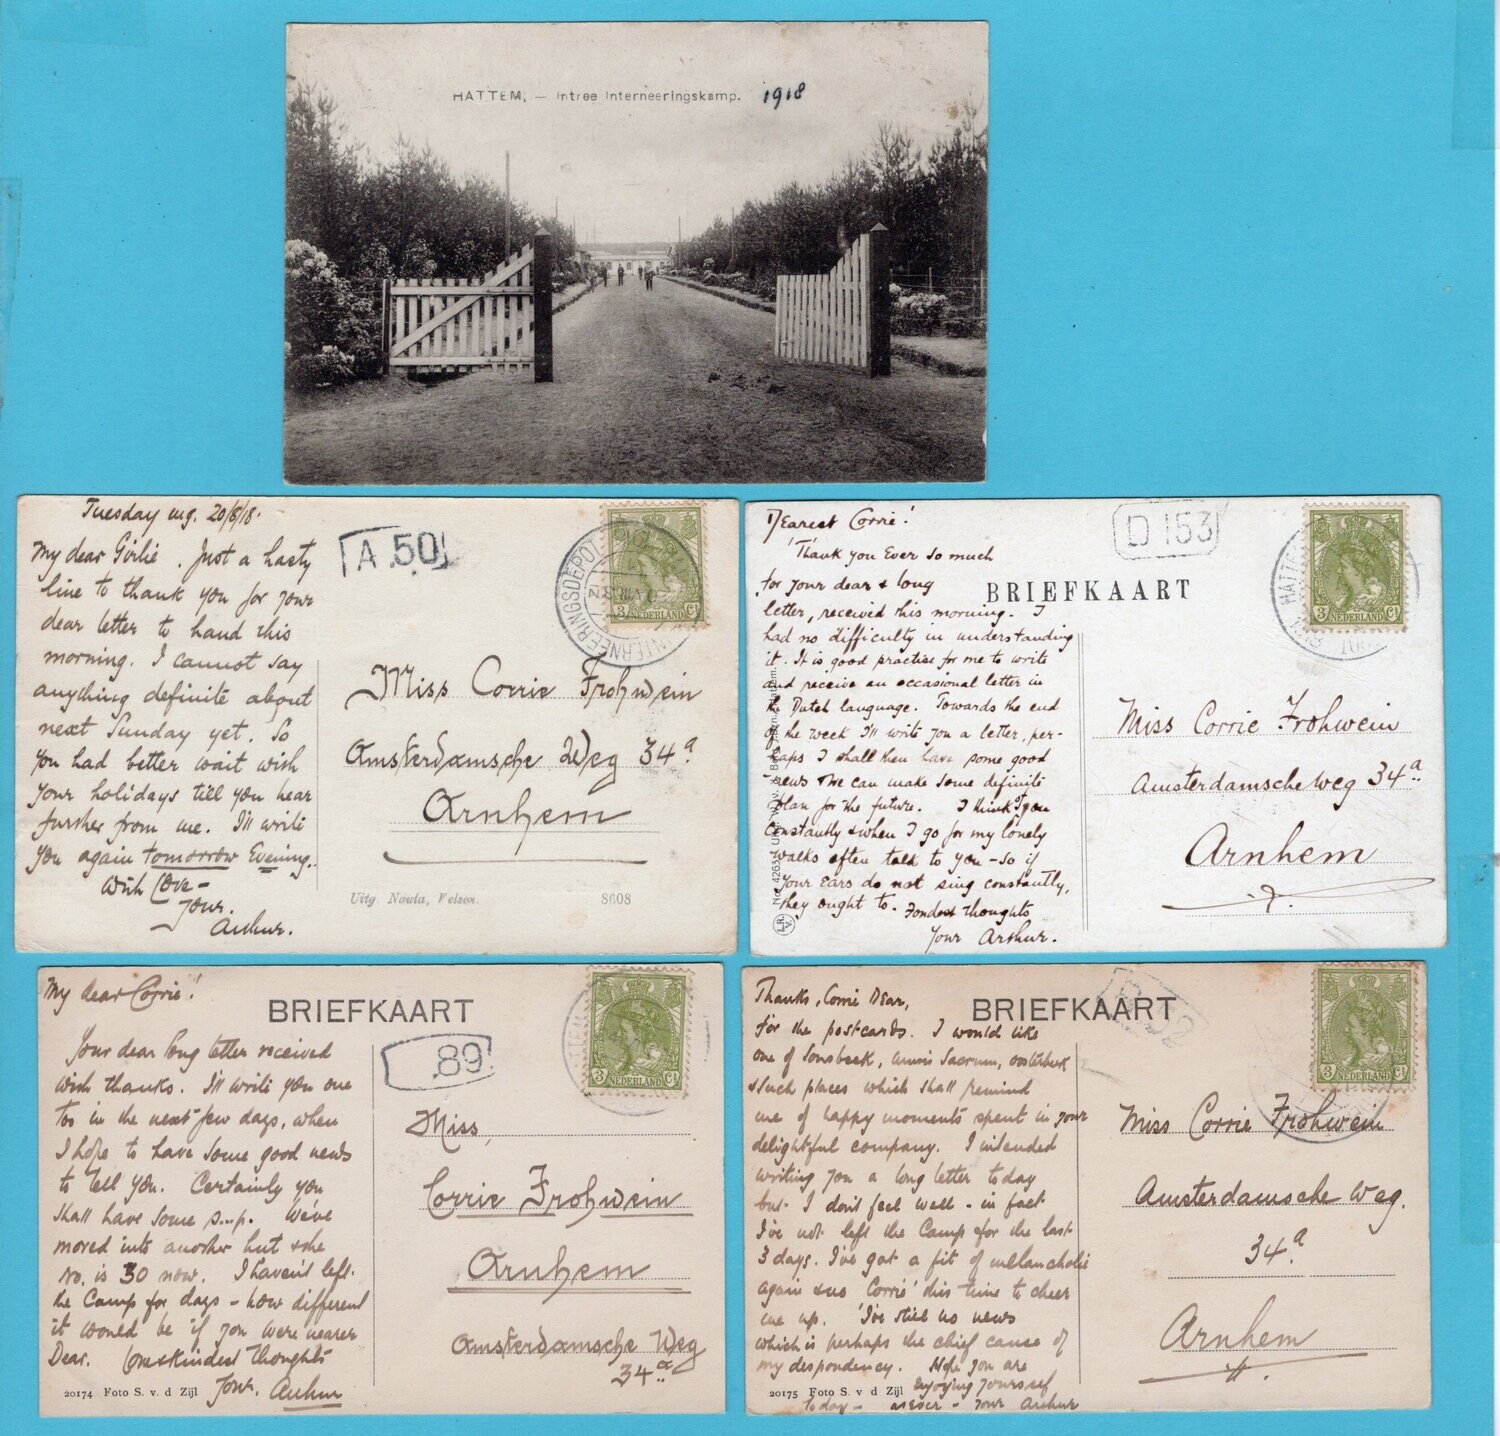 HATTEM, — Intree Interneeringskamp. 1918
Tuesday evg. 20/8/18.
My dear Girlie. Just a hasty
line to thank you for your
dear letter to hand this
morning. I cannot say
anything definite about
next Sunday yet. So
you had better wait with
your holidays till you hear
further from me. I'll write
you again tomorrow Evening.
With Love –
Your.
Arthur.
A.50
INTERNEERINGSDEPOT
3 NEDERLAND Ct
Miss Corrie Frohwein
Amsterdamsche Weg 34a
Arnhem
Uitg. Nauta, Velsen. 8608
Dearest Corrie!
Thank you Ever so much
for your dear & long
letter, received this morning. I
had no difficulty in understanding
it. It is good practise for me to write
and receive an occasional letter in
the Dutch language. Towards the end
of the week I'll write you a letter, per-
haps I shall then have some good
news & we can make some definite
plan for the future. I think of you
constantly & when I go for my lonely
walks often talk to you – so if
your Ears do not sing constantly,
they ought to. Fondest thoughts
Your Arthur.
D 153
BRIEFKAART
HATTE
3 NEDERLAND Ct
Miss Corrie Frohwein
Amsterdamsche weg 34a
Arnhem
My dear Corrie!
Your dear long letter received
with thanks. I'll write you one
too in the next few days, when
I hope to have some good news
to tell you. Certainly you
shall have some s...p. We've
moved into another hut & the
No. is 30 now. I haven't left
the Camp for days – how different
it would be if you were nearer
Dear. Love & kindest thoughts
Your, Arthur
20174 Foto S. v. d Zijl
BRIEFKAART
.89
3 NEDERLAND Ct
Miss,
Corrie Frohwein
Arnhem
Amsterdamsche Weg
34a
Thanks, Corrie Dear,
for the postcards. I would like
one of Sonsbeek, Sacrum, oosterbeek
& such places which shall remind
me of happy moments spent in your
delightful company. I intended
writing you a long letter today
but I don't feel well – in fact
I've not left the Camp for the last
3 days. I've got a fit of melancholie
again & no 'Corrie' this time to cheer
me up. I've still no news
which is perhaps the chief cause of
my despondency. Hope you are
enjoying yourself
today – as Ever – your Arthur
20175 Foto S. v d Zijl
BRIEFKAART
3 NEDERLAND Ct
Miss Corrie Frohwein
Amsterdamsche Weg.
34a
Arnhem